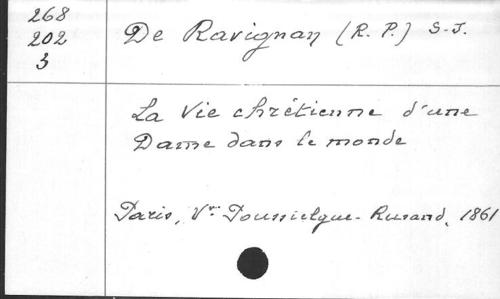 268
202
3
De Ravignan (R. P.) S-J.
La Vie chrétienne d'une
Dame dans le monde
Paris, Vve Poussielgue-Rusand, 1861